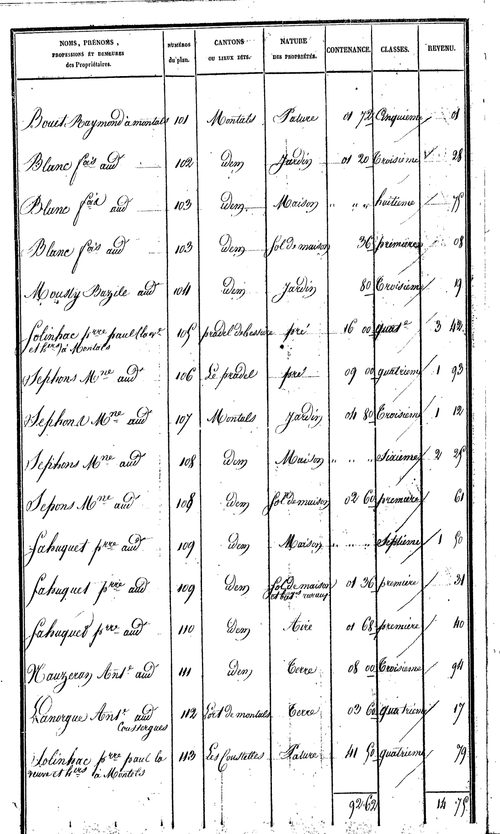 NOMS, PRÉNOMS, PROFESSIONS ET DEMEURES des Propriétaires. NUMÉROS du plan. CANTONS OU LIEUX DITS. NATURE DES PROPRIÉTÉS. CONTENANCE. CLASSES. REVENU.
Bouet Raymond à montals 101 Montals Pature 01 72 Cinquième 01
Blanc fois aud 102 idem Jardin 01 20 Troisième 28
Blanc fois aud 103 idem Maison " " " huitieme 75
Blanc fois aud 103 idem Sol de maison 36 première 08
Moussy Bazile aud 104 idem Jardin 80 Troisième 19
Solinhac prre paul 105 pradel pré 16 00 3 42
et hers à Montals
Sephons Mne aud 106 Le pradel pré 09 00 quatrieme 1 93
Sephons Mne aud 107 Montals Jardin 04 80 Troisieme 1 12
Sephons Mne aud 108 idem Maison " " " Sixieme 2 25
Sepons Mne aud 108 idem Sol de maison 02 60 première 61
Sahuquet prre aud 109 idem Maison " " " Septième 1 50
Sahuquet prre aud 109 idem Sol de maison 01 36 première 31
Sahuquet prre aud 110 idem Aire 01 68 première 40
Nauzeran Ant.e aud 111 idem Terre 08 00 Troisieme 94
Lanorgue Ant.e aud 112 L'ort de montals Terre 03 60 quatrième 17
Coussergues
Solinhac prre paul la 113 Les Coustelles Pature 41 50 quatrième 79
neuve et hers à Montals
92 62 14 75